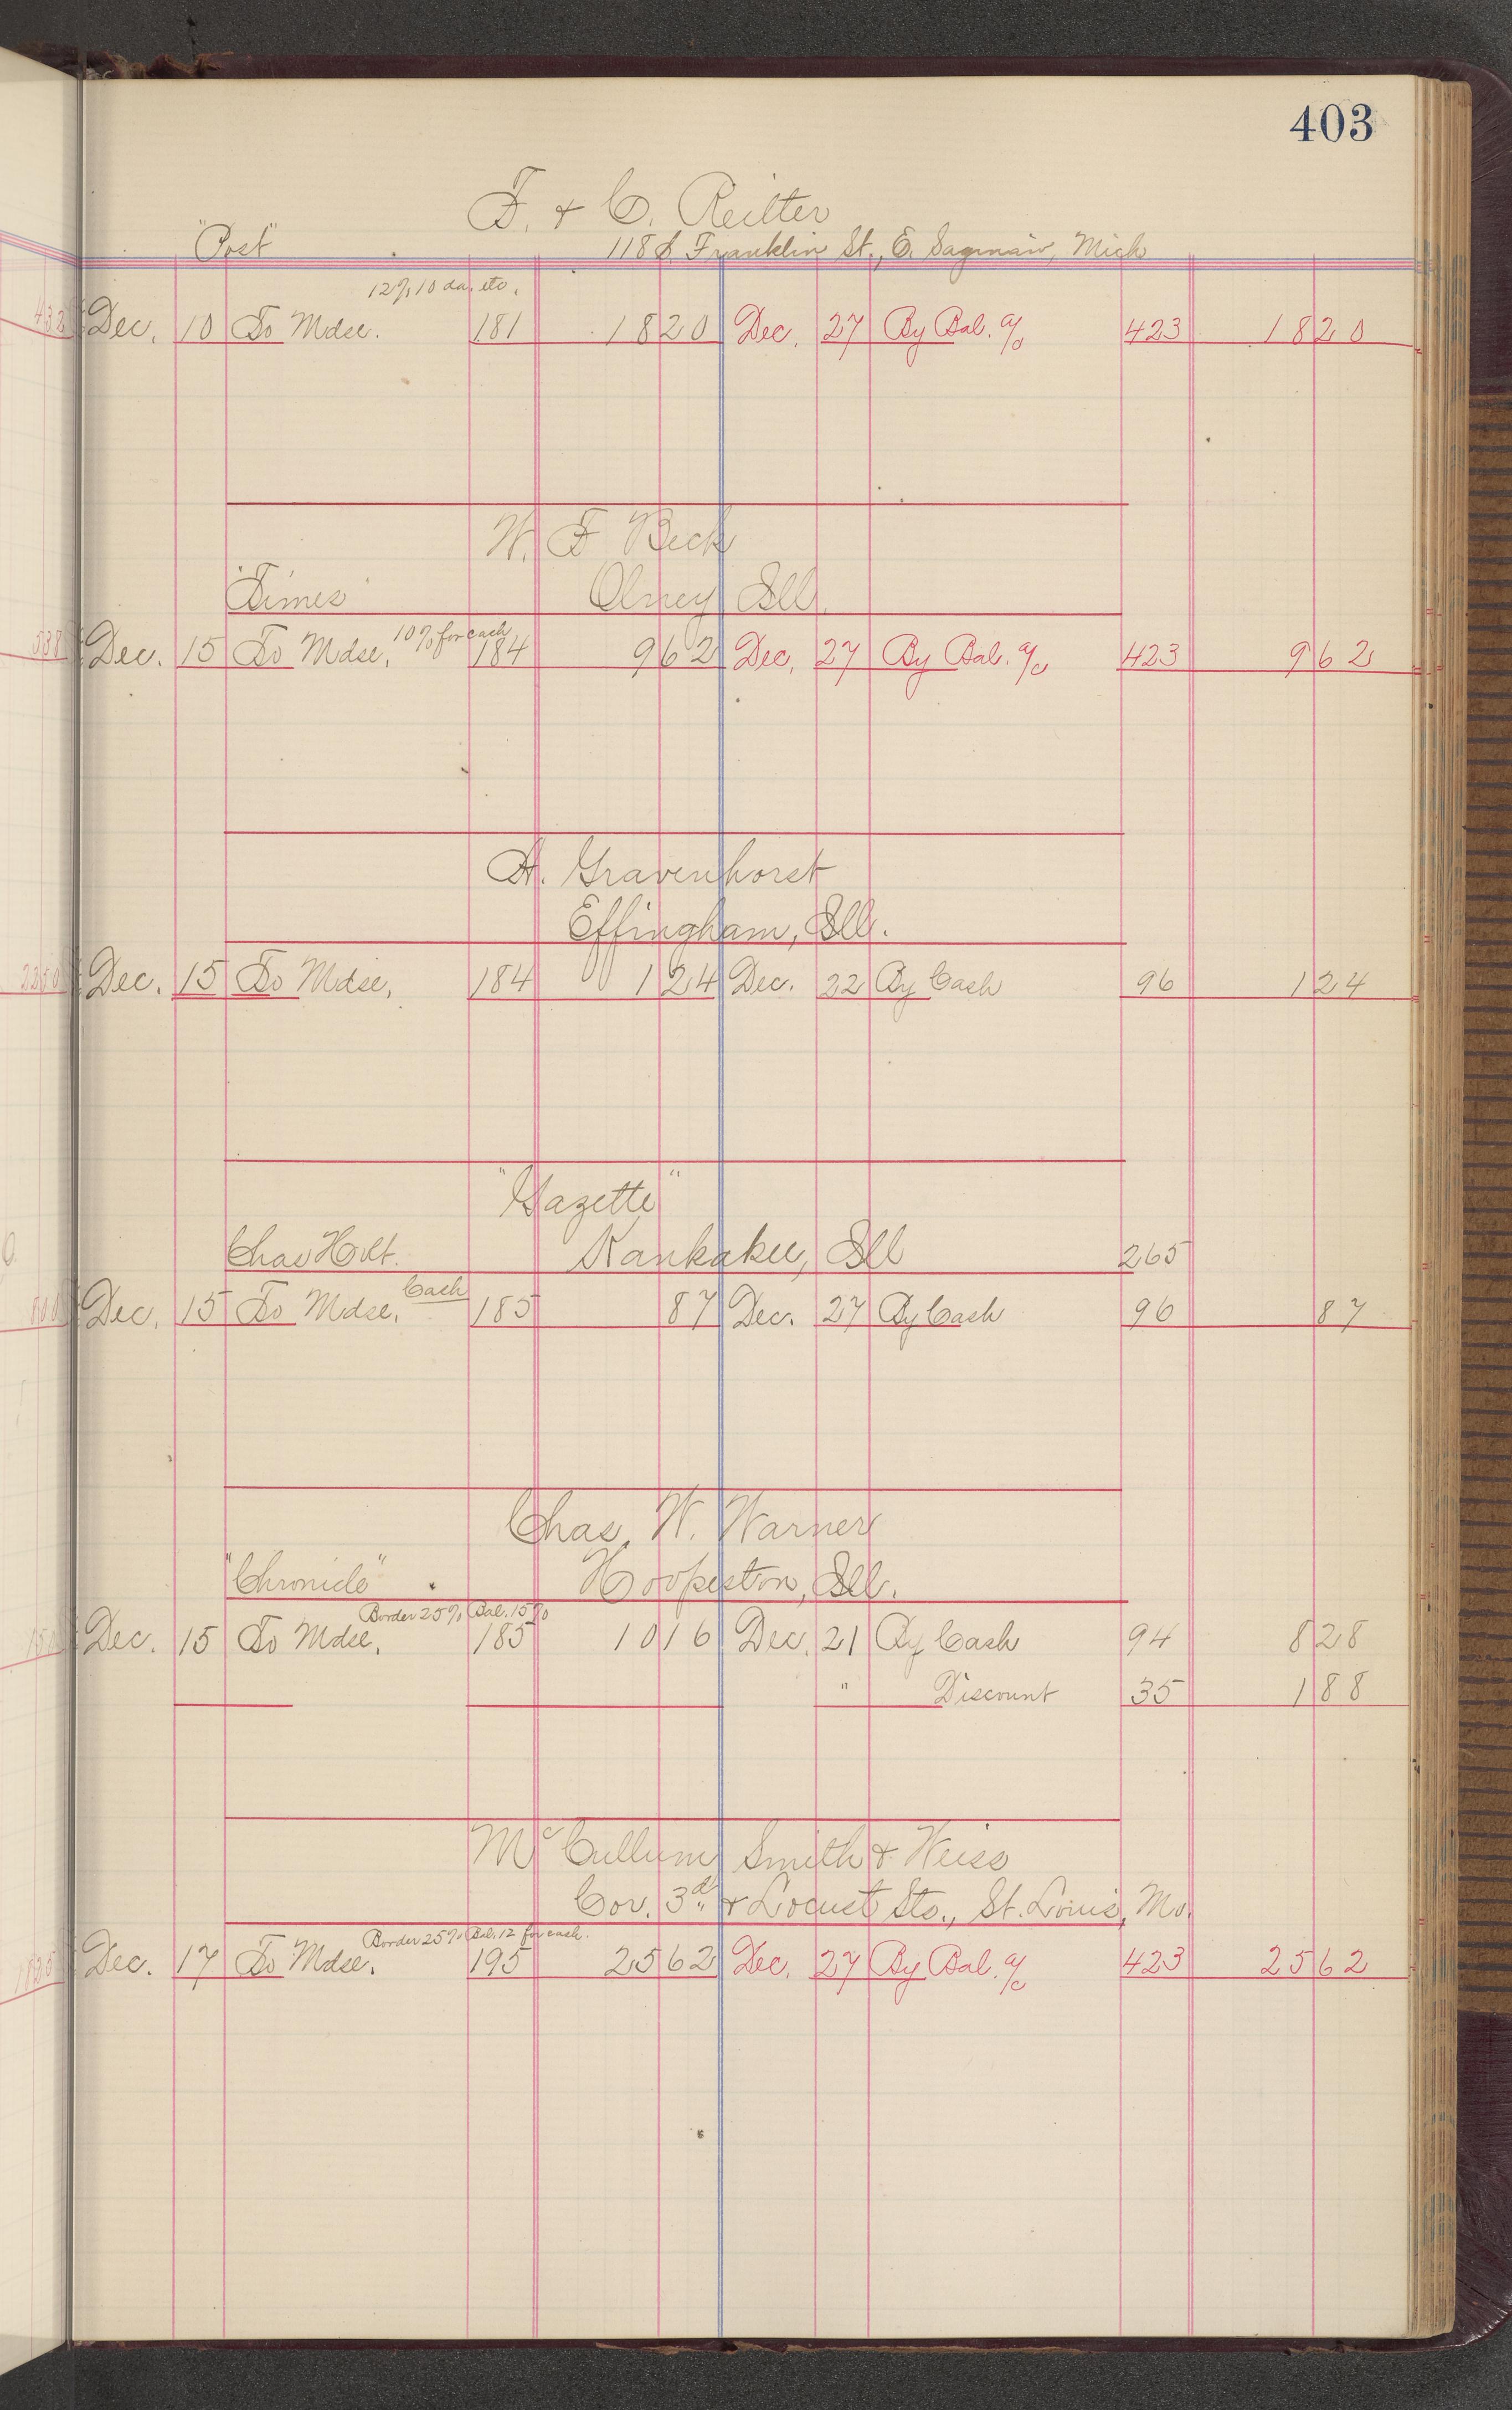 403
F. & C. Reitter
"Post" 118 S. Franklin St., E. Saginaw, Mich
12% 10 da. etc.
Dec. 10 To Mdse. 181 18 20 Dec. 27 By Bal. a/c 423 18 20
W. F Beck
"Times" Olney Ill.
10% for cash
Dec. 15 To Mdse. 184 9 62 Dec. 27 By Bal. a/c 423 9 62
A. Gravenhorst
Effingham, Ill.
Dec. 15 To Mdse. 184 1 24 Dec. 22 By Cash 96 1 24
"Gazette"
Chas Holt. Kankakee, Ill 265
Cash
Dec. 15 To Mdse. 185 87 Dec. 27 By Cash 96 87
Chas. W. Warner
"Chronicle" Hoopeston, Ill.
Border 25% Bal. 15%
Dec. 15 To Mdse. 185 10 16 Dec. 21 By Cash 94 8 28
" Discount 35 1 88
McCullum Smith & Weiss
Cor. 3d & Locust Sts., St. Louis, Mo.
Border 25% Bal. 12 for cash.
Dec. 17 To Mdse. 195 25 62 Dec. 27 By Bal. a/c 423 25 62